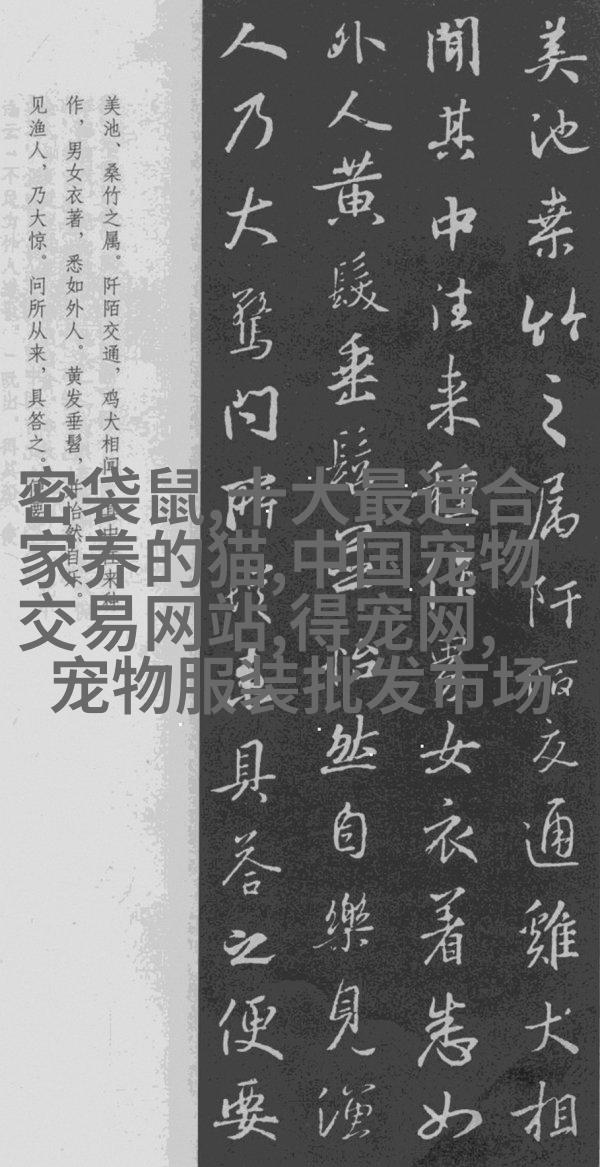 美池桒竹之属阡陌交通雞犬相
聞其中往来種作男女衣着悉如
外人黄髮垂髫並怡然自樂見漁
人乃大驚问所從来具答之便要
美池、桑竹之属。阡陌交通，鸡犬相闻。
作，男女衣著，悉如外人。黄发垂髫，
见渔人，乃大惊。问所从来，具答之。
密袋鼠,十大最适合
家养的猫,中国宠物
交易网站,得宠网,
宠物服装批发市场